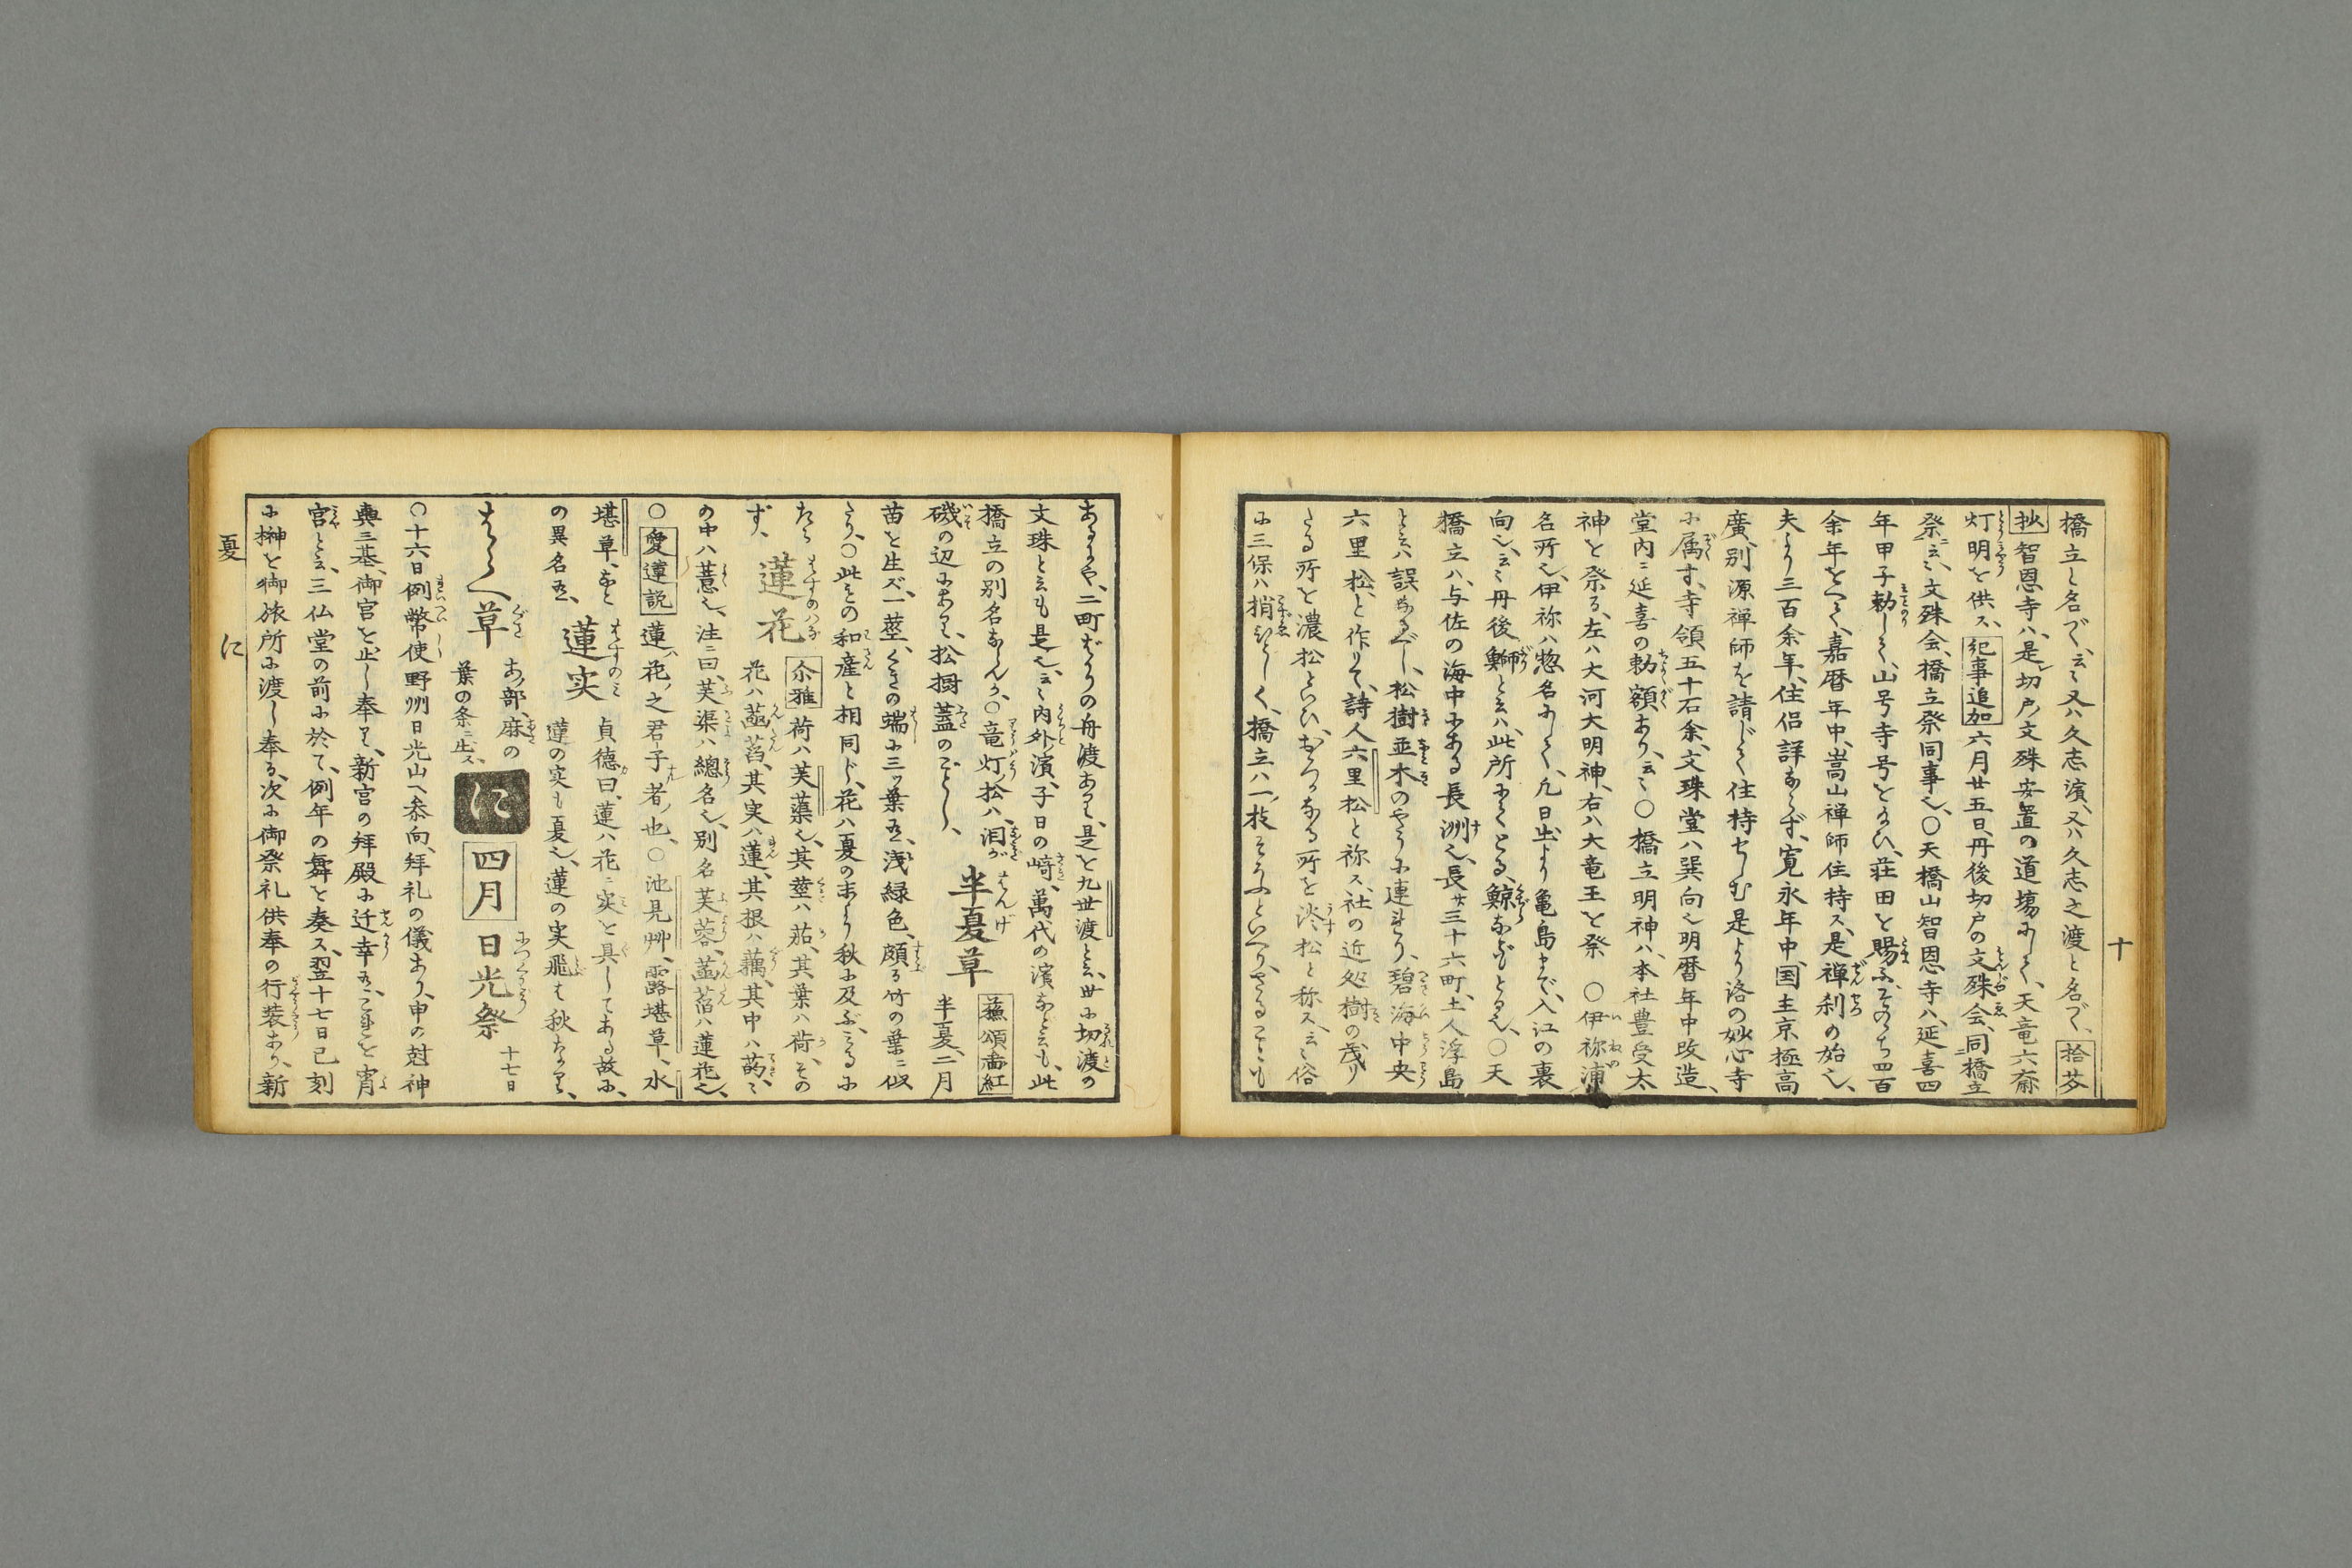 十
橋立と名づく、云々又ハ久志濱、又ハ久志之渡と名づく、拾芥
抄智恩寺ハ、是レ切戸ノ文殊安置の道場にして、天竜六齋
灯明を供ス、紀事追加六月廿五日、丹後切戸の文殊会、同橋立
祭ニ云、文殊会、橋立祭同事也、○天橋山智恩寺ハ、延喜四
年甲子勅して、山号寺号を給ひ、荘田を賜ふ、そのゝち四百
余年をへて、嘉暦年中、嵩山禅師住持ス、是禅刹の始也、
夫より三百余年、住侶詳ならず、寛永年中、国主京極高
廣、別源禅師を請じて住持せしむ是より洛の妙心寺
に属す、寺領五十石余、文珠堂ハ巽向也明暦年中改造、
堂内ニ延喜の勅額あり、云々○橋立明神ハ、本社豊受太
神を祭る、左ハ大河大明神、右ハ大竜王を祭　○伊祢浦
名所也、伊祢ハ惣名にして、凡日出より亀島まで、入江の裏
向也、云々丹後鰤と云ハ、此所にてとる、鯨なども とる也、○天
橋立ハ、与佐の海中にある長洲也、長サ三十六町、土人浮島
と云ハ誤なるべし、松樹並木のやうに連れり、碧海中央
六里松、と作りて、詩人六里松と称ス、社の近処樹の茂り
たる所を濃松といひ、おろかなる所を淡松と称ス、云々俗
に三保ハ梢ひとしく、橋立ハ一ノ枝そろふといへり、さることも
あるにや、二町ばかりの舟渡あり、是を九世渡と云、世に切渡の
文珠と云も是也、云々内外濱、子日の﨑、萬代の濱なと云も、此
橋立の別名ならんか、○竜灯ノ松ハ、洄ガ
磯の辺にあり、松樹蓋のごとし、
半夏草
蘓頌啚紅
半夏、二月
苗を生ズ、一茎、くきの端に三ツ葉出、浅緑色、頗る竹の葉ニ似
たり、○此その和産と相同じ、花ハ夏の末より秋に及ぶ、
ず、
蓮花
尒雅荷ハ芙蕖也、其茎ハ茄、其葉ハ荷、その
花ハ菡萏、其実ハ蓮、其根ハ藕、其中ハ菂、々
の中ハ薏也、注ニ曰、芙渠ハ總名也、別名芙蓉、菡萏ハ蓮花也、
○愛蓮説蓮ハ花ノ之君子ナル者ノ也、○池見艸、露堪草、水
堪草、なと
の異名也、
蓮実
貞徳曰、蓮ハ花ニ実を具してある故に、
蓮の実も夏也、蓮の実飛ハ秋なり、
はゝくへ草
あノ部、麻の
葉の条ニ出ス、
に
四月
日光祭
十七日
○十六日例幣使野州日光山へ参向、拜礼の儀あり、申の尅神
輿三基、御宮を出し奉て、新宮の拜殿に迁幸也、これを宵
宮と云、三仏堂の前に於て、例年の舞を奏ス、翌十七日巳刻
に榊を御旅所に渡し奉る、次に御祭礼供奉の行装あり、新
夏
に